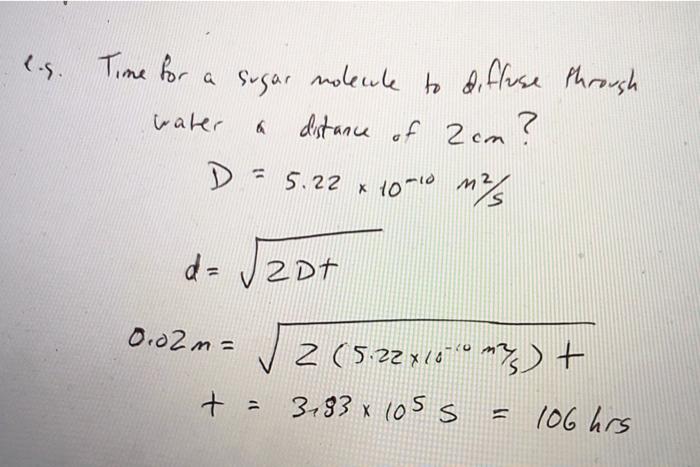 e.g. Time for a sugar molecule to diffuse through
water a distance of 2cm?
D = 5.22 x 10⁻¹⁰ m²/s
d = √2Dt
0.02m = √2(5.22x10⁻¹⁰ m²/s)t
t = 3.83 x 10⁵ s = 106 hrs